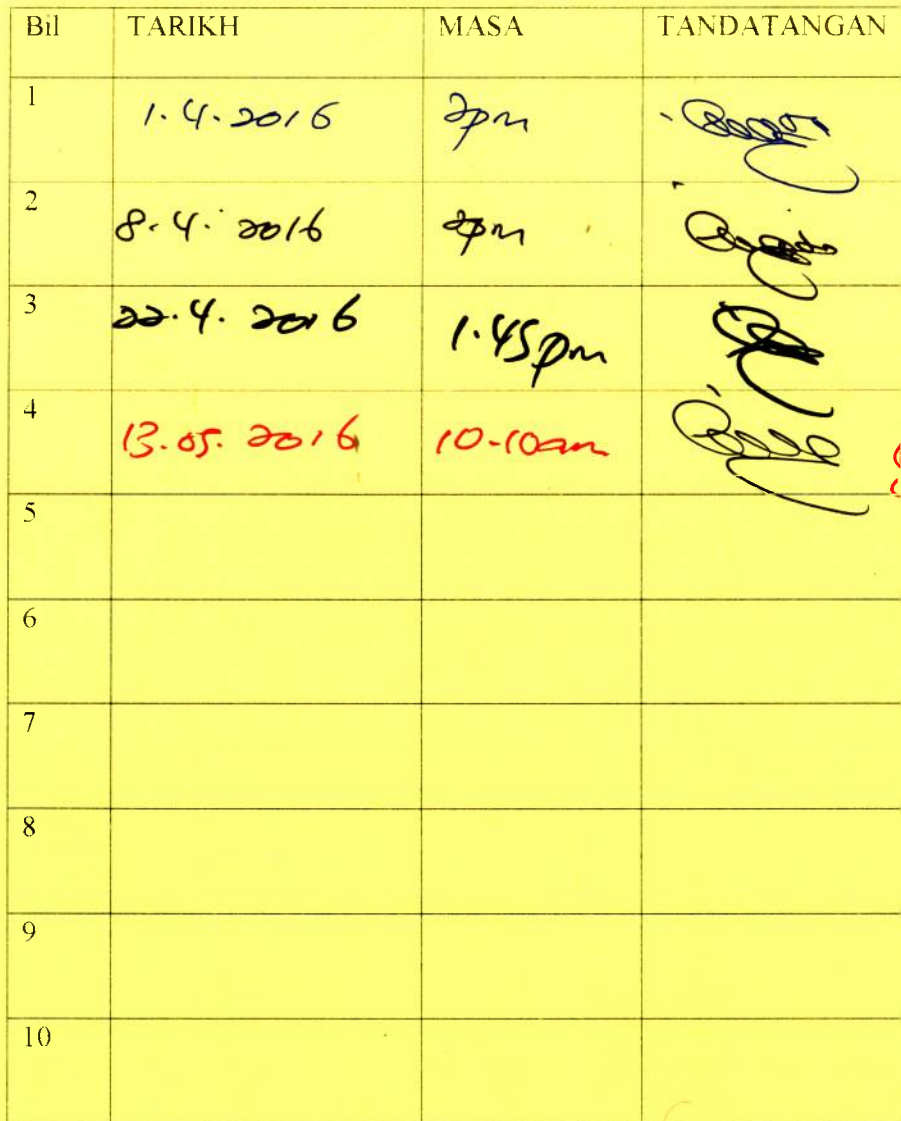 Bil TARIKH MASA TANDATANGAN
1 1.4.2016 2pm
2 8.4.2016 2pm
3 22.4.2016 1.45pm
4 13.05.2016 10.10am
5
6
7
8
9
10